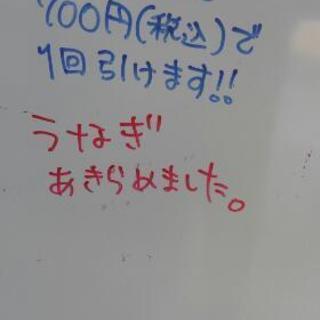 100円(税込)で
1回引けます!!
うなぎ
あきらめました。